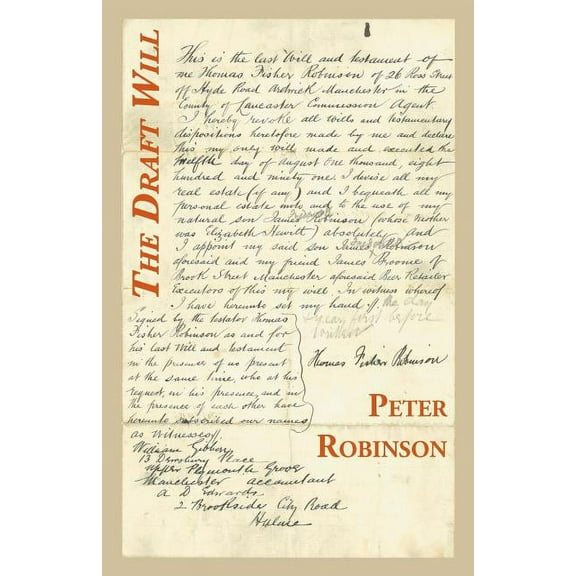 THE DRAFT WILL
This is the last Will and testament of
me Thomas Fisher Robinson of 26 Ross Street
off Hyde Road Ardwick Manchester in the
County of Lancaster Commission Agent.
I hereby revoke all wills and testamentary
dispositions heretofore made by me and declare
this my only will made and executed the
twelfth day of august one thousand, eight
hundred and ninety one I devise all my
real estate (if any) and I bequeath all my
personal estate unto and to the use of my
natural son James Robinson (whose mother
was Elizabeth Hewitt) absolutely and
I appoint my said son James Robinson
aforesaid and my friend James Broome of
Brook Street Manchester aforesaid Beer Retailer
Executors of this my will. In witness whereof
I have hereunto set my hand the day
& year first before
written
Signed by the testator Thomas
Fisher Robinson as and for
his last Will and testament
in the presence of us present
at the same time, who at his
request, in his presence, and in
the presence of each other have
hereunto subscribed our names
as witnesses
Thomas Fisher Robinson
William
13 Dewsbury Place
Upper Plymouth Grove
Manchester accountant
A D Edwards
2 Brookside City Road
Hulme
PETER
ROBINSON